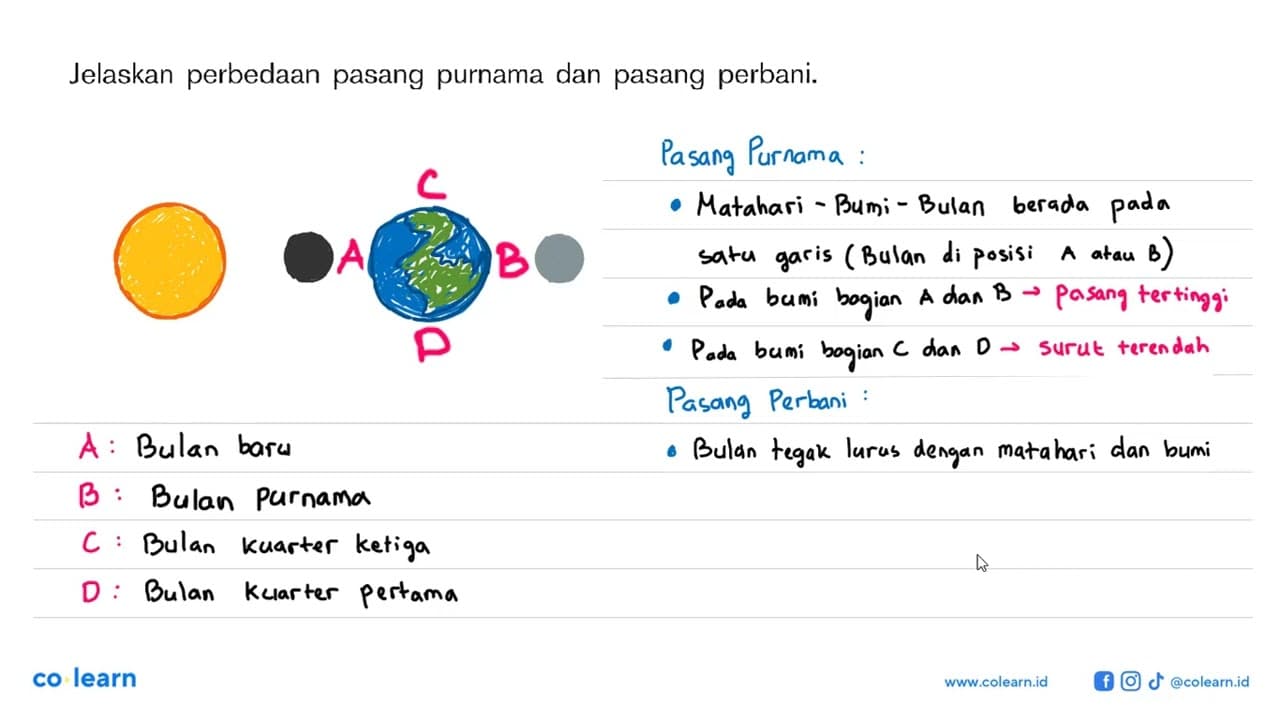 Jelaskan perbedaan pasang purnama dan pasang perbani.
C
A
B
D
A : Bulan baru
B : Bulan purnama
C : Bulan kuarter ketiga
D : Bulan kuarter pertama
Pasang Purnama :
• Matahari - Bumi - Bulan berada pada
satu garis (Bulan di posisi A atau B)
• Pada bumi bagian A dan B → pasang tertinggi
• Pada bumi bagian C dan D → surut terendah
Pasang Perbani :
• Bulan tegak lurus dengan matahari dan bumi
co learn
www.colearn.id
@colearn.id